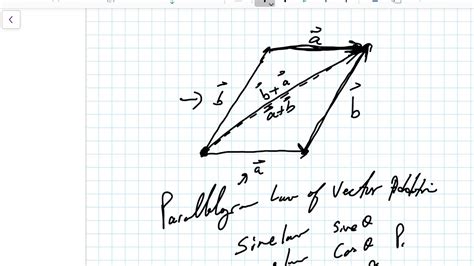 a⃗
→ b⃗
b⃗ + a⃗
a⃗ + b⃗
b⃗
a⃗
Parallelogram Law of Vector Addition
Sine law sine θ
law Cos θ P.